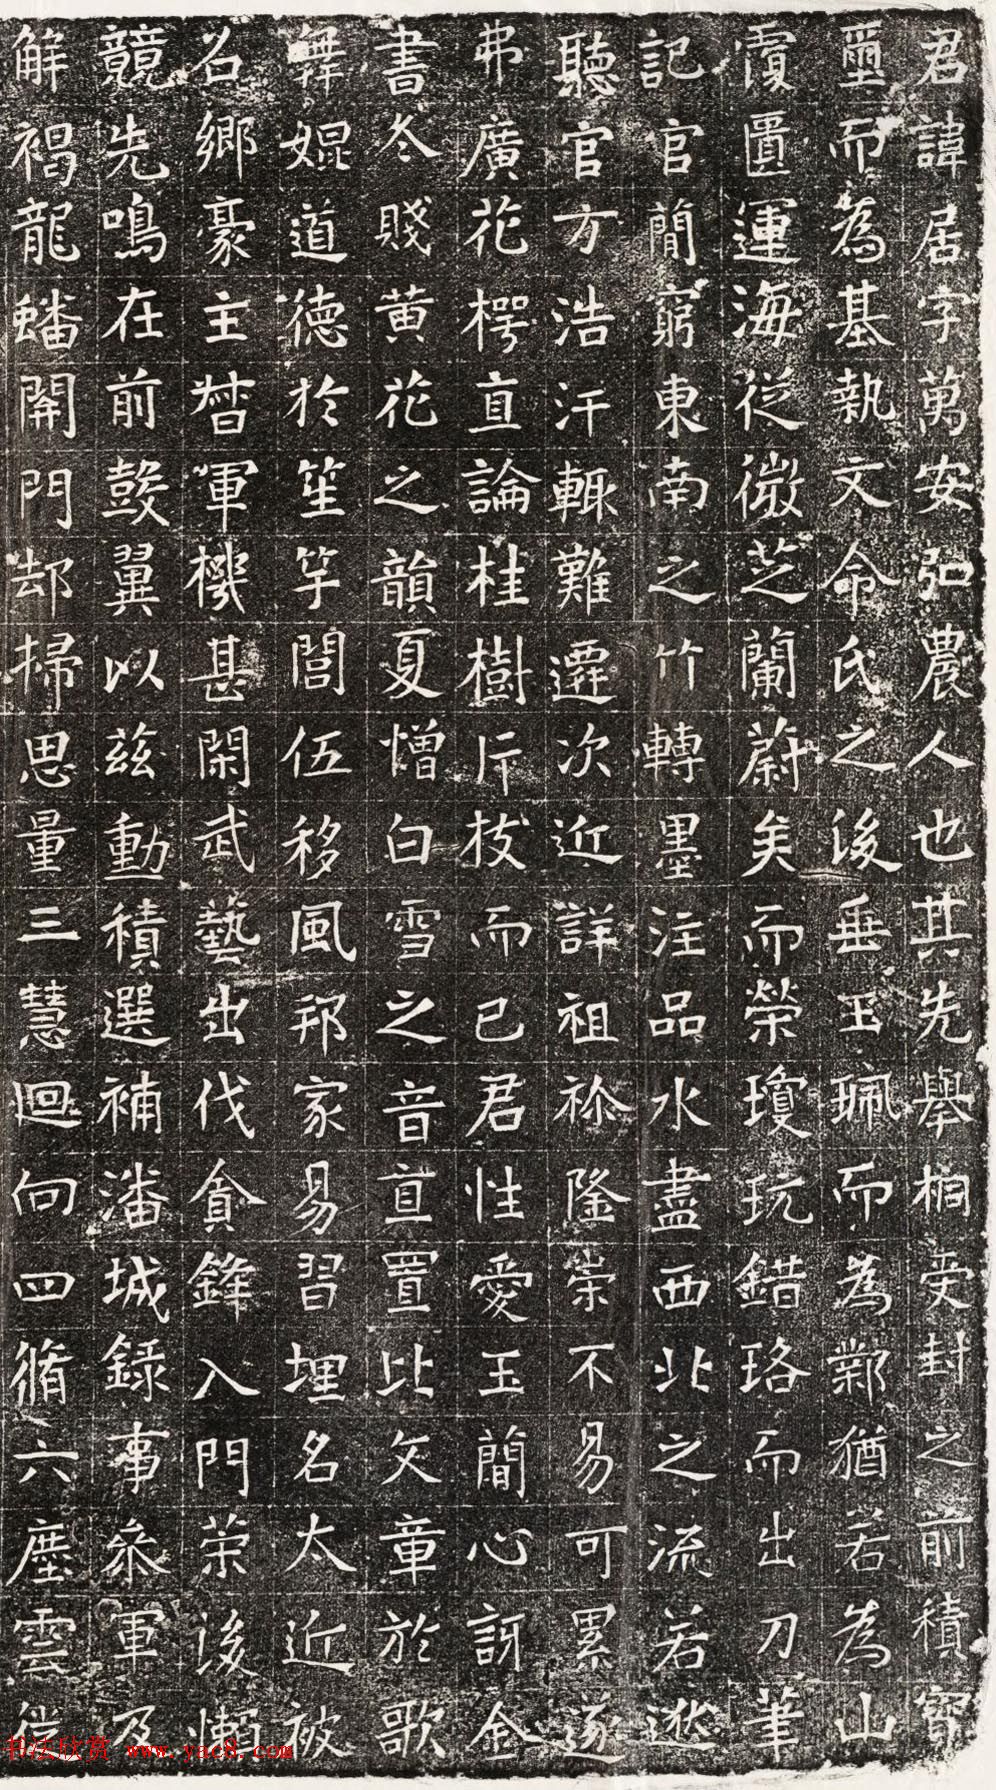 君諱居字萬安弘農人也其先舉桐受封之前積寶
璽而為基執文命氏之後垂玉珮而為鄴猶若為山
覆匱運海從微芝蘭蔚矣而榮瓊玩錯珞而出刀筆
記官簡窮東南之竹轉墨注品水盡西北之流若逖
聽官方浩汗輒難遷次近詳祖祢隆崇不易可累遂
弗廣花樗直論桂樹片枝而已君性愛玉簡心訝金
書冬賤黄花之韻夏憎白雪之音直置比矢章於歌
舞焜道德於笙竽閭伍移風邦家易習埋名太近被
名鄉豪主替軍機甚閑武藝出伐貪鋒入門荣後懶
競先鳴在前鼓翼以兹動積選補潘城録事参軍及
解褐龍蟠開門却掃思量三慧迴向四脩六塵雲從
书法欣赏 www.yac8.com